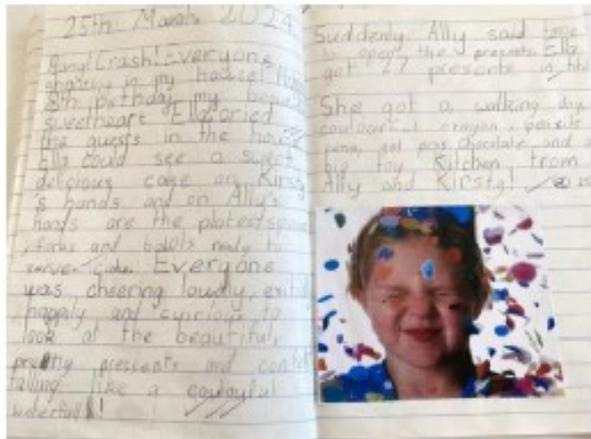 25th March 2024
Bang! Crash! Everyone
in my house! Happy
8th birthday my
sweetheart Ella cried
the guests in the house
Ella could see a sweet
delicious cake on Kirsty
's hands and on Ally's
hands are the plates spoons
, forks and bowls ready to
serve cake. Everyone
was cheering loudly,
happily and curious to
look at the beautiful,
pretty presents and
falling like a
waterfall!
Suddenly Ally said time
to open the presents. Ella
got 27 presents in
She got a walking dog,
crayon, pencils
pens, gel pens chocolate, and a
big toy Kitchen from
Ally and Kirsty!